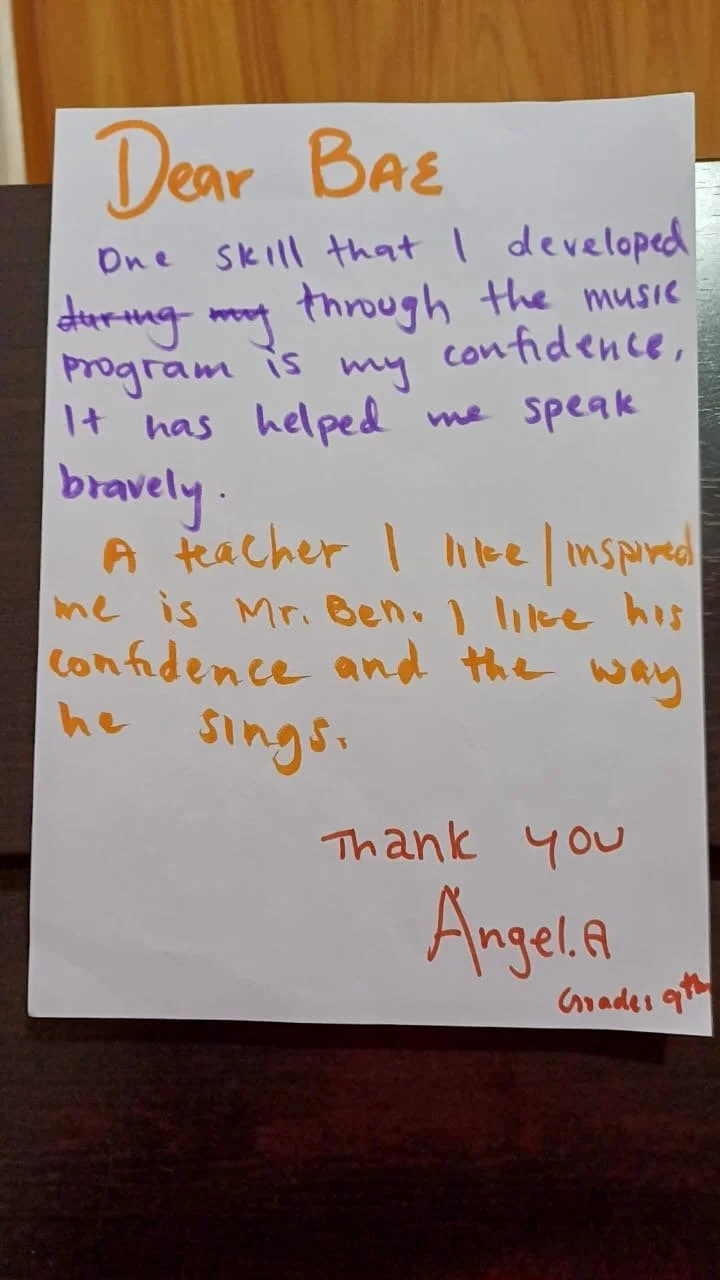 Dear BAE
One skill that I developed
during my through the music
program is my confidence,
It has helped me speak
bravely.
A teacher I like/inspired
me is Mr. Ben. I like his
confidence and the way
he sings.
Thank you
Angel.A
Grades 9th